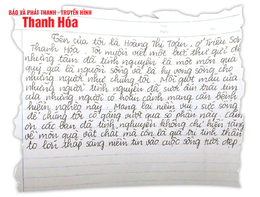 BÁO VÀ PHÁT THANH - TRUYỀN HÌNH
Thanh Hóa
Tên của tôi là Hoàng Thị Toàn, ở Triệu Sơn
Thanh Hóa. Tôi muốn viết một bức thư gửi đến
những tấm đã tình nguyện là một món quà
quý giá là nguồn sống và là hy vọng sống cho
những người như chúng tôi. Mỗi giọt máu của
những người tình nguyện đã sưởi ấm trái tim
của những người có hoàn cảnh mang căn bệnh
hiểm nghèo này. Mang lại niềm vui, sức sống
để chúng tôi cố gắng vượt qua số phận này. Cảm
ơn các bạn đã tình nguyện không chỉ hiện tặng
về món quà vật chất mà còn là giá trị tinh thần
to lớn thắp sáng niềm tin vào cuộc sống tươi đẹp